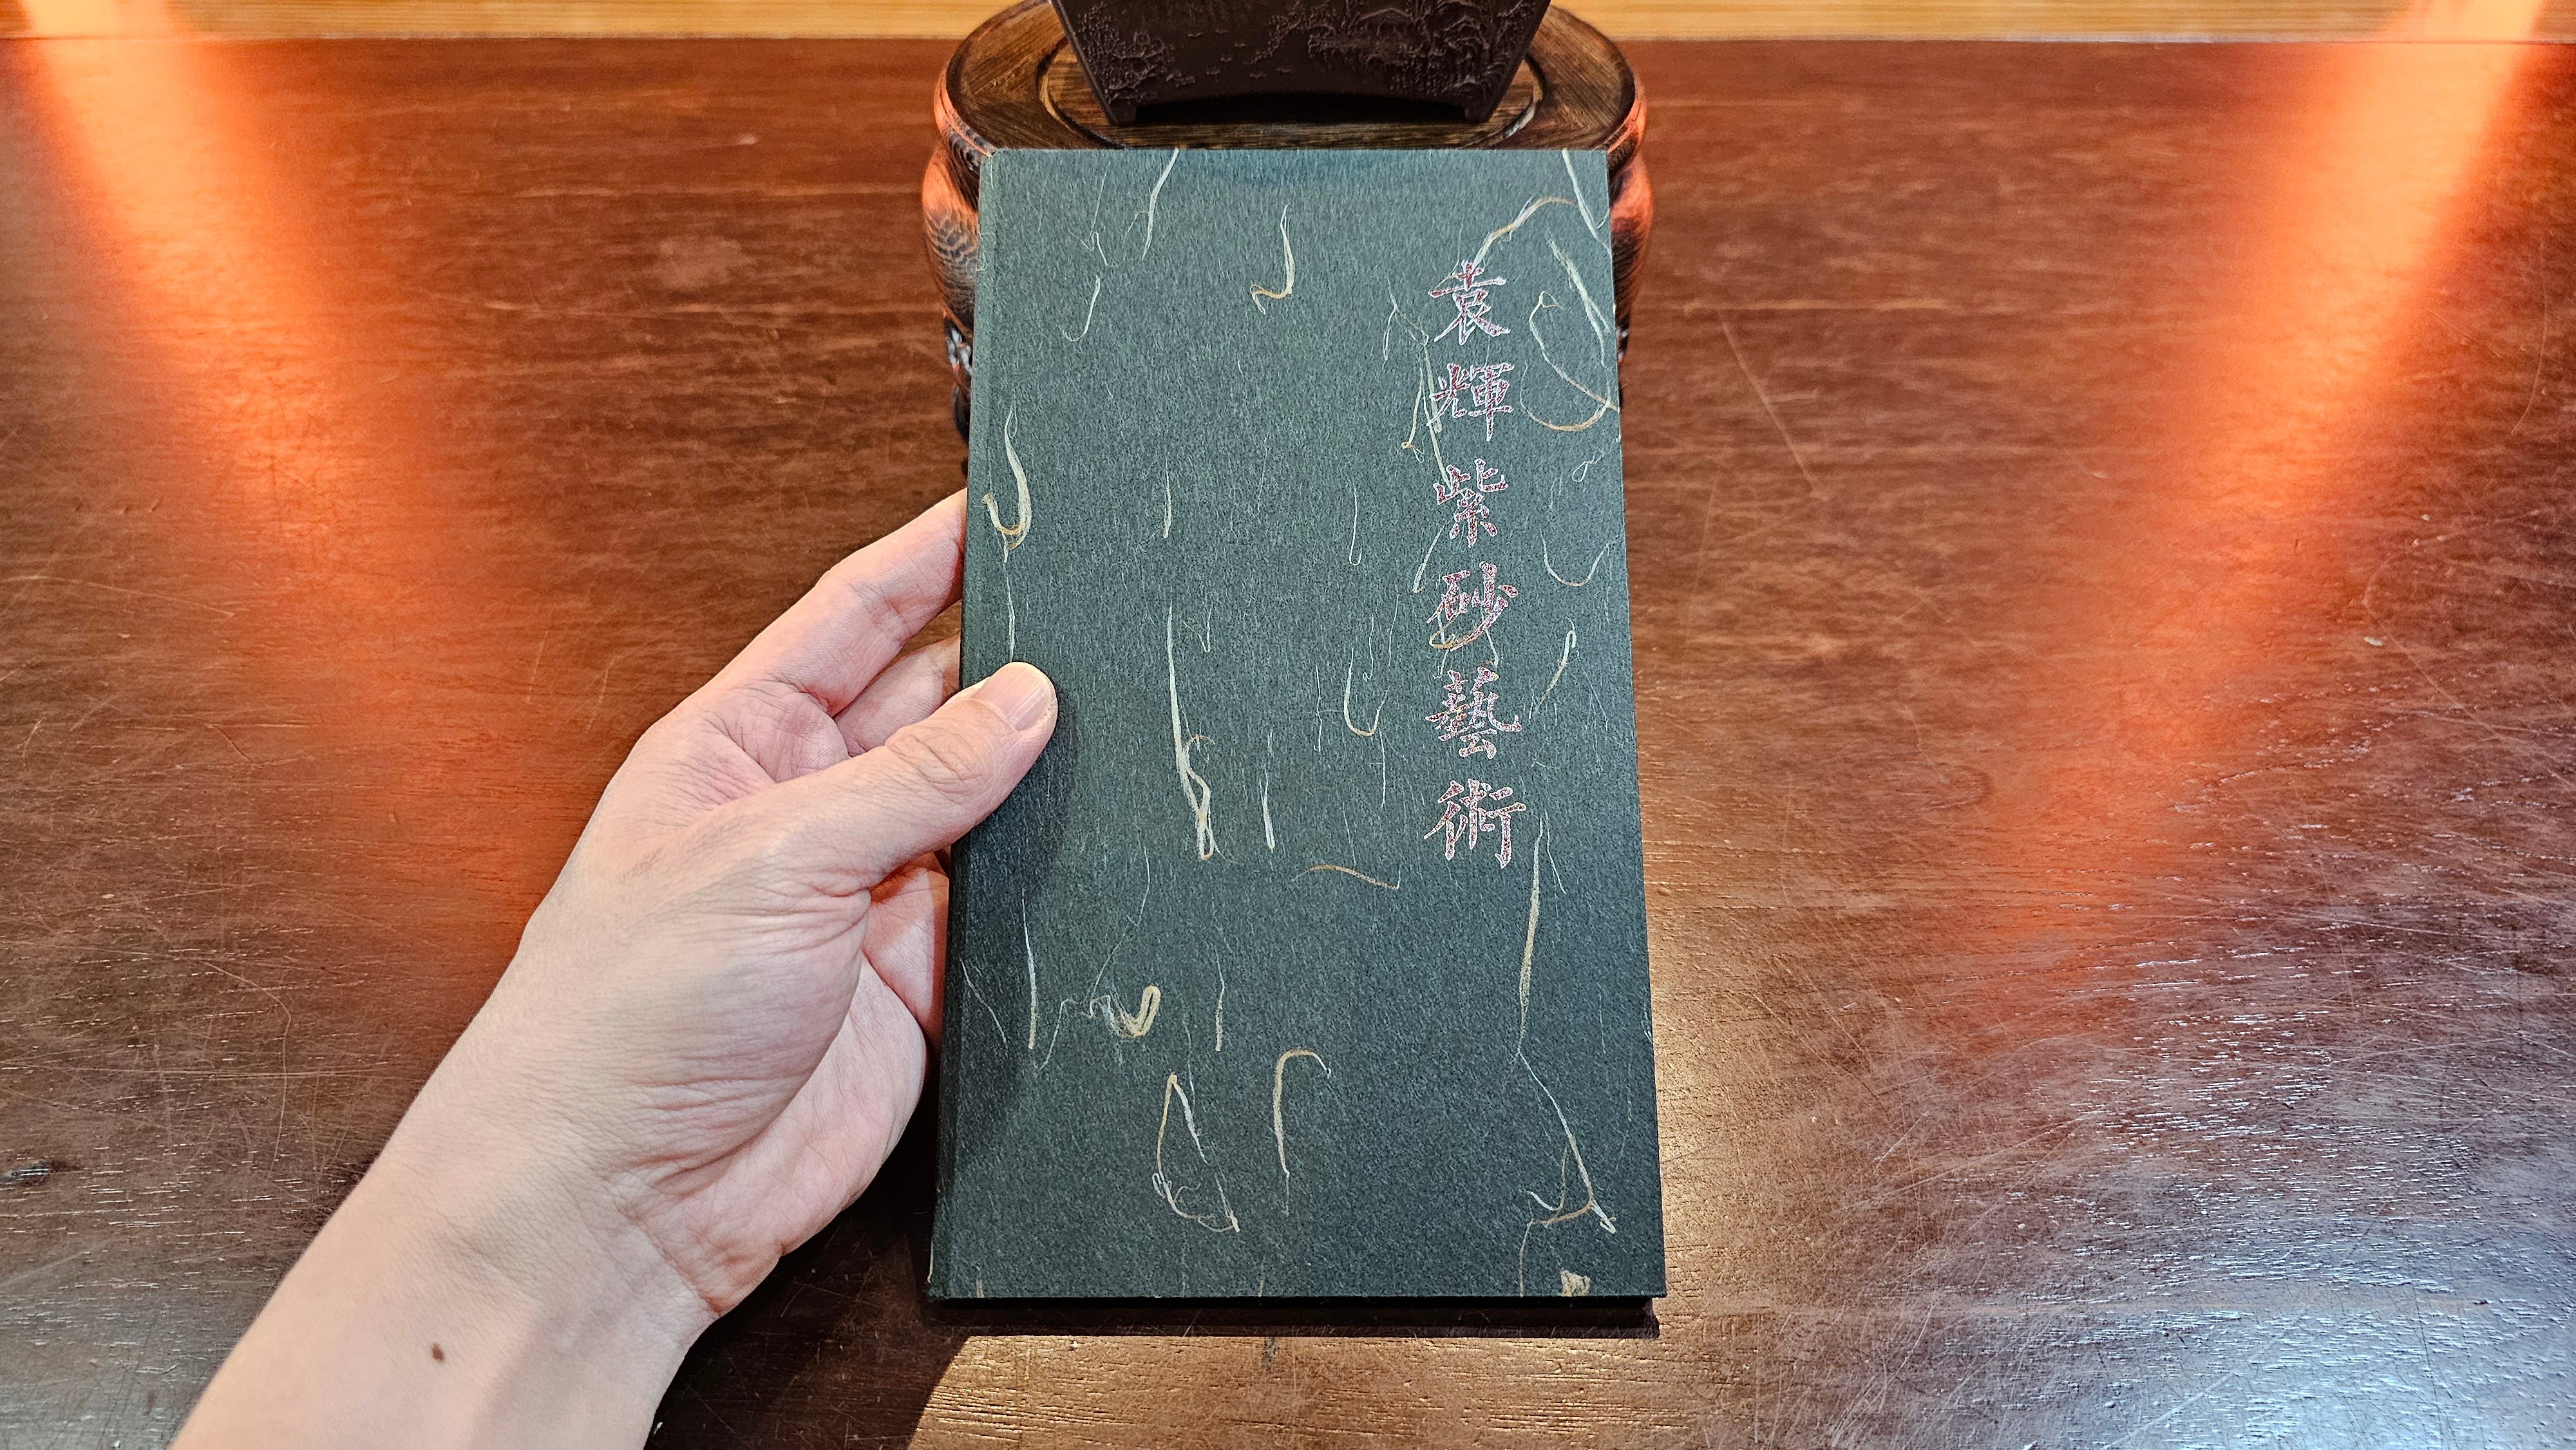 袁輝紫砂藝術